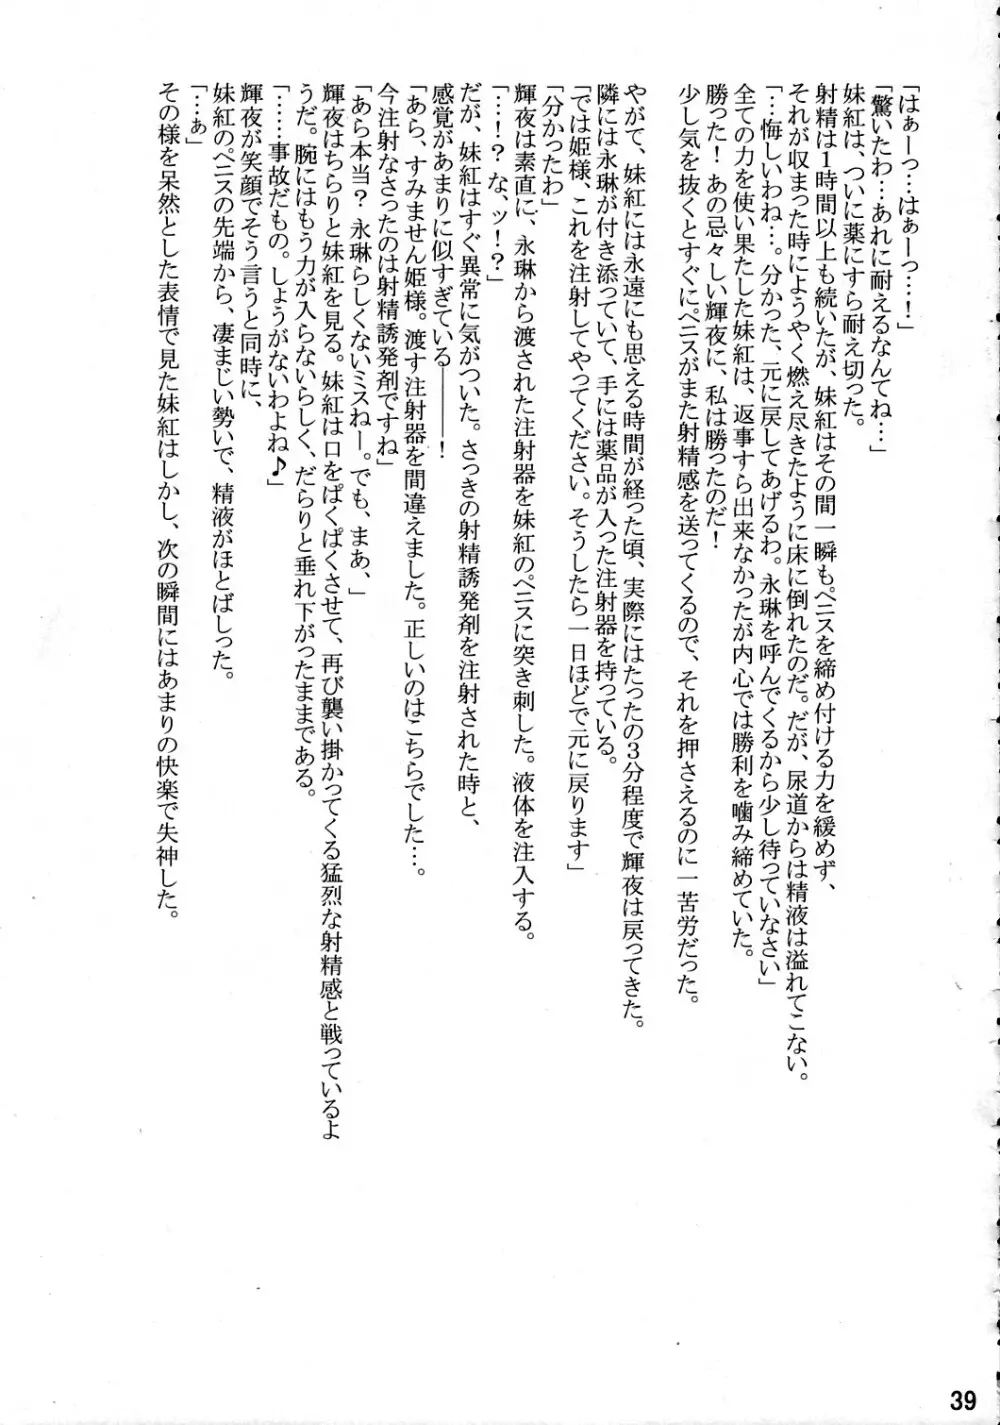 「はぁーっ…はぁーっ…！」
「驚いたわ…あれに耐えるなんてね…」
妹紅は、ついに薬にすら耐え切った。
射精は１時間以上も続いたが、妹紅はその間一瞬もペニスを締め付ける力を緩めず、
それが収まった時にようやく燃え尽きたように床に倒れたのだ。だが、尿道からは精液は溢れてこない。
「…悔しいわね…。分かった、元に戻してあげるわ。永琳を呼んでくるから少し待っていなさい」
全ての力を使い果たした妹紅は、返事すら出来なかったが内心では勝利を噛み締めていた。
勝った！あの忌々しい輝夜に、私は勝ったのだ！
少し気を抜くとすぐにペニスがまた射精感を送ってくるので、それを押さえるのに一苦労だった。
やがて、妹紅には永遠にも思える時間が経った頃、実際にはたったの３分程度で輝夜は戻ってきた。
隣には永琳が付き添っていて、手には薬品が入った注射器を持っている。
「では姫様、これを注射してやってください。そうしたら一日ほどで元に戻ります」
「分かったわ」
輝夜は素直に、永琳から渡された注射器を妹紅のペニスに突き刺した。液体を注入する。
「…！？な、ッ！？」
だが、妹紅はすぐ異常に気がついた。さっきの射精誘発剤を注射された時と、
感覚があまりに似すぎている――！
「あら、すみません姫様。渡す注射器を間違えました。正しいのはこちらでした…。
今注射なさったのは射精誘発剤ですね」
「あら本当？永琳らしくないミスねー。でも、まあ、」
輝夜はちらりと妹紅を見る。妹紅は口をぱくぱくさせて、再び襲い掛かってくる猛烈な射精感と戦っているよ
うだ。腕にはもう力が入らないらしく、だらりと垂れ下がったままである。
「……事故だもの。しょうがないわよね♪」
輝夜が笑顔でそう言うと同時に、
妹紅のペニスの先端から、凄まじい勢いで、精液がほとばしった。
「…ぁ」
その様を呆然とした表情で見た妹紅はしかし、次の瞬間にはあまりの快楽で失神した。
39